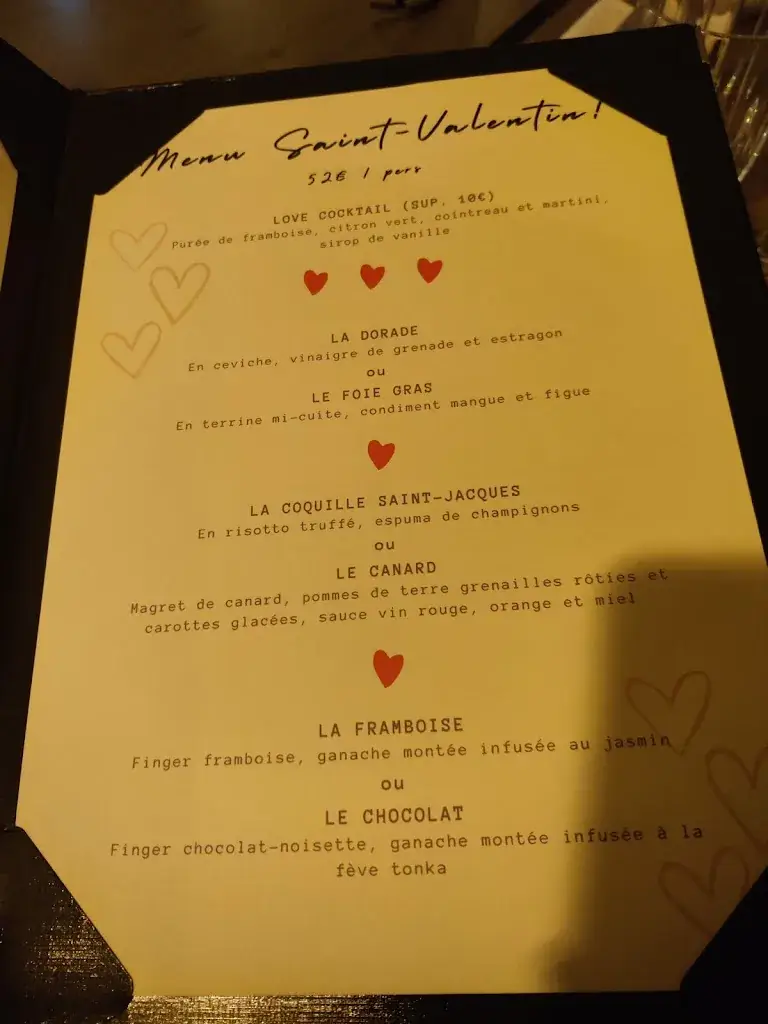 Menu Saint-Valentin!
52€ / pers
LOVE COCKTAIL (SUP. 10€)
Purée de framboise, citron vert, cointreau et martini,
sirop de vanille
LA DORADE
En ceviche, vinaigre de grenade et estragon
ou
LE FOIE GRAS
En terrine mi-cuite, condiment mangue et figue
LA COQUILLE SAINT-JACQUES
En risotto truffé, espuma de champignons
ou
LE CANARD
Magret de canard, pommes de terre grenailles rôties et
carottes glacées, sauce vin rouge, orange et miel
LA FRAMBOISE
Finger framboise, ganache montée infusée au jasmin
ou
LE CHOCOLAT
Finger chocolat-noisette, ganache montée infusée à la
fève tonka